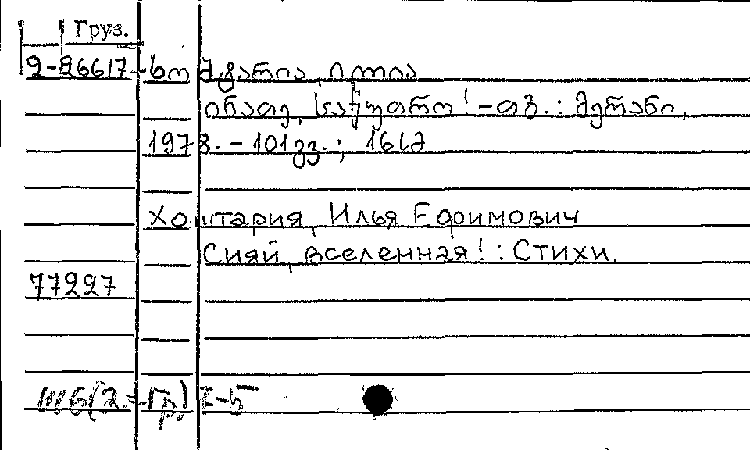 Груз.
2-26617
ხოშტარია, ილია
ინათე, სამყარო! – თბ.: მერანი,
1978. – 101 გვ.; 16 სმ
Хоштария, Илья Ефимович
Сияй, вселенная!: Стихи.
77227
5